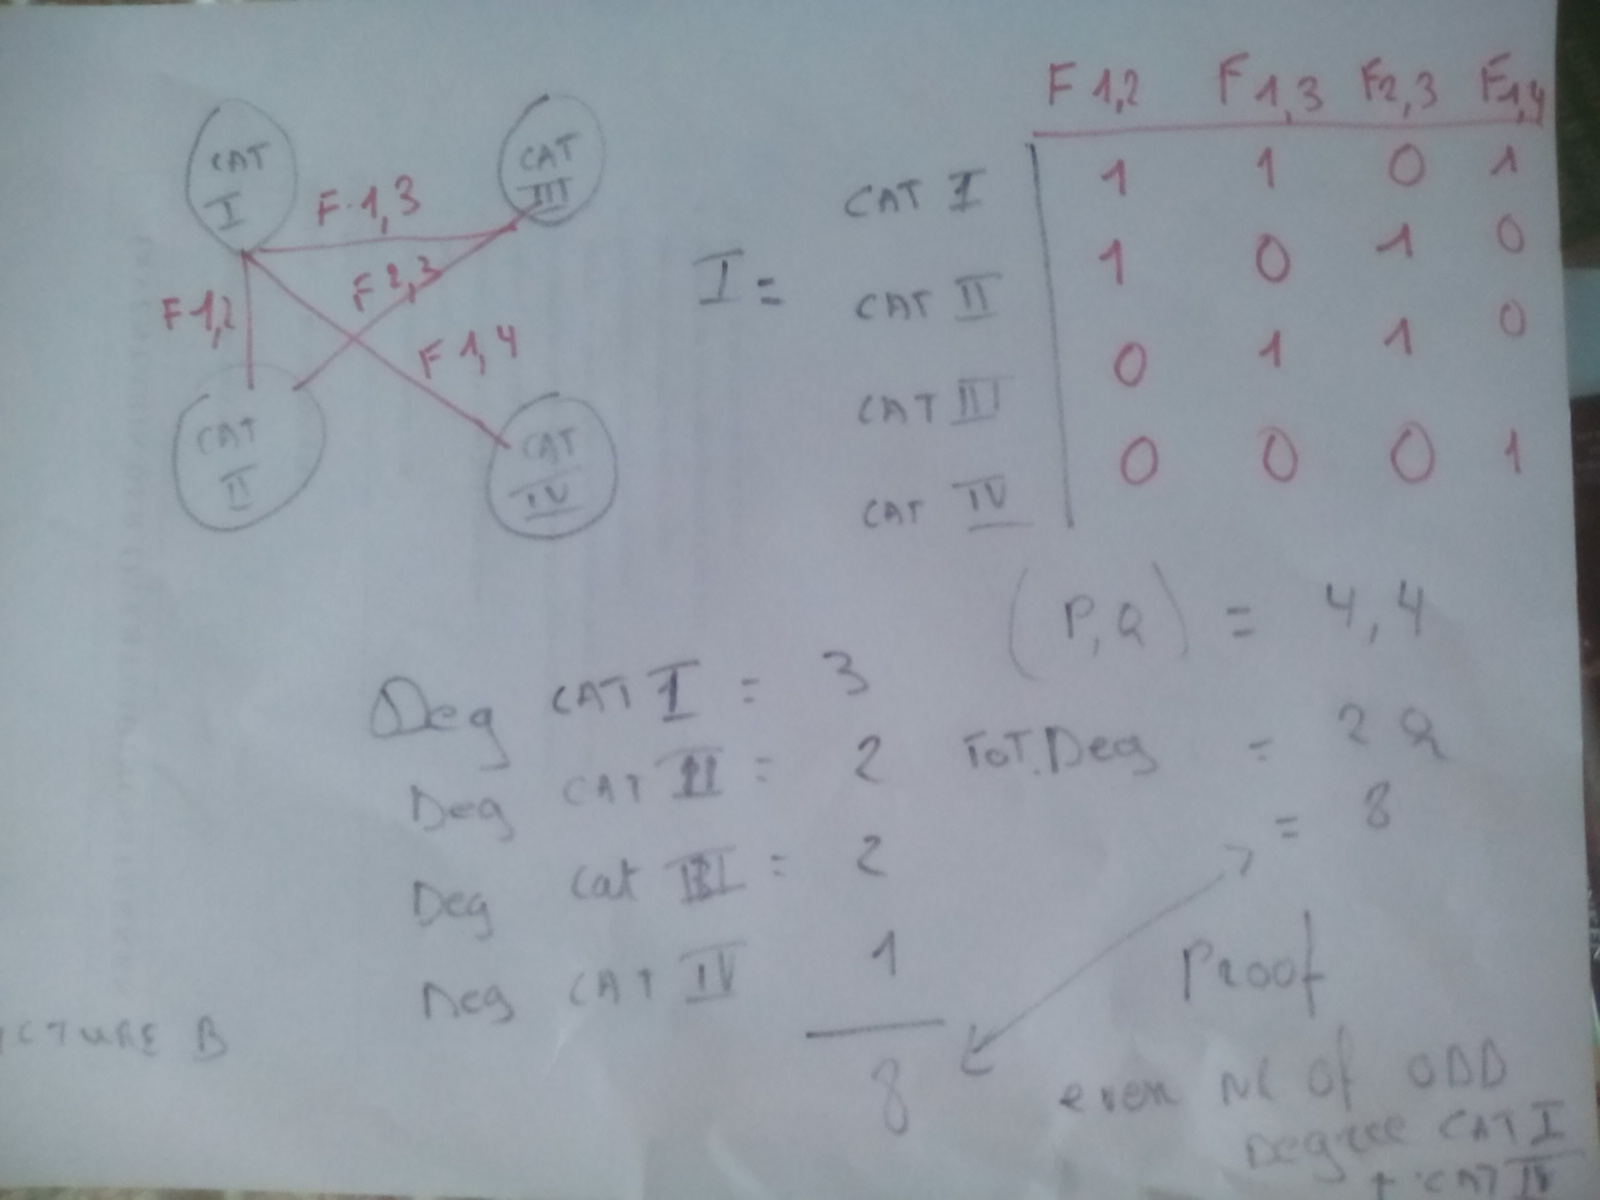 CAT
I
CAT
III
F·1,3
F 2,3
F 1,2
F 1,4
CAT
II
CAT
IV
F 1,2 F 1,3 F2,3 F1,4
I =
CAT I 1 1 0 1
CAT II 1 0 1 0
CAT III 0 1 1 0
CAT IV 0 0 0 1
(P,Q) = 4,4
Deg CAT I = 3
Deg CAT II = 2
Deg Cat III = 2
Deg CAT IV 1
8
ToT.Deg = 2 Q
= 8
Proof
even NR Of ODD
Degree CAT I
+ CAT IV
ICTURE B